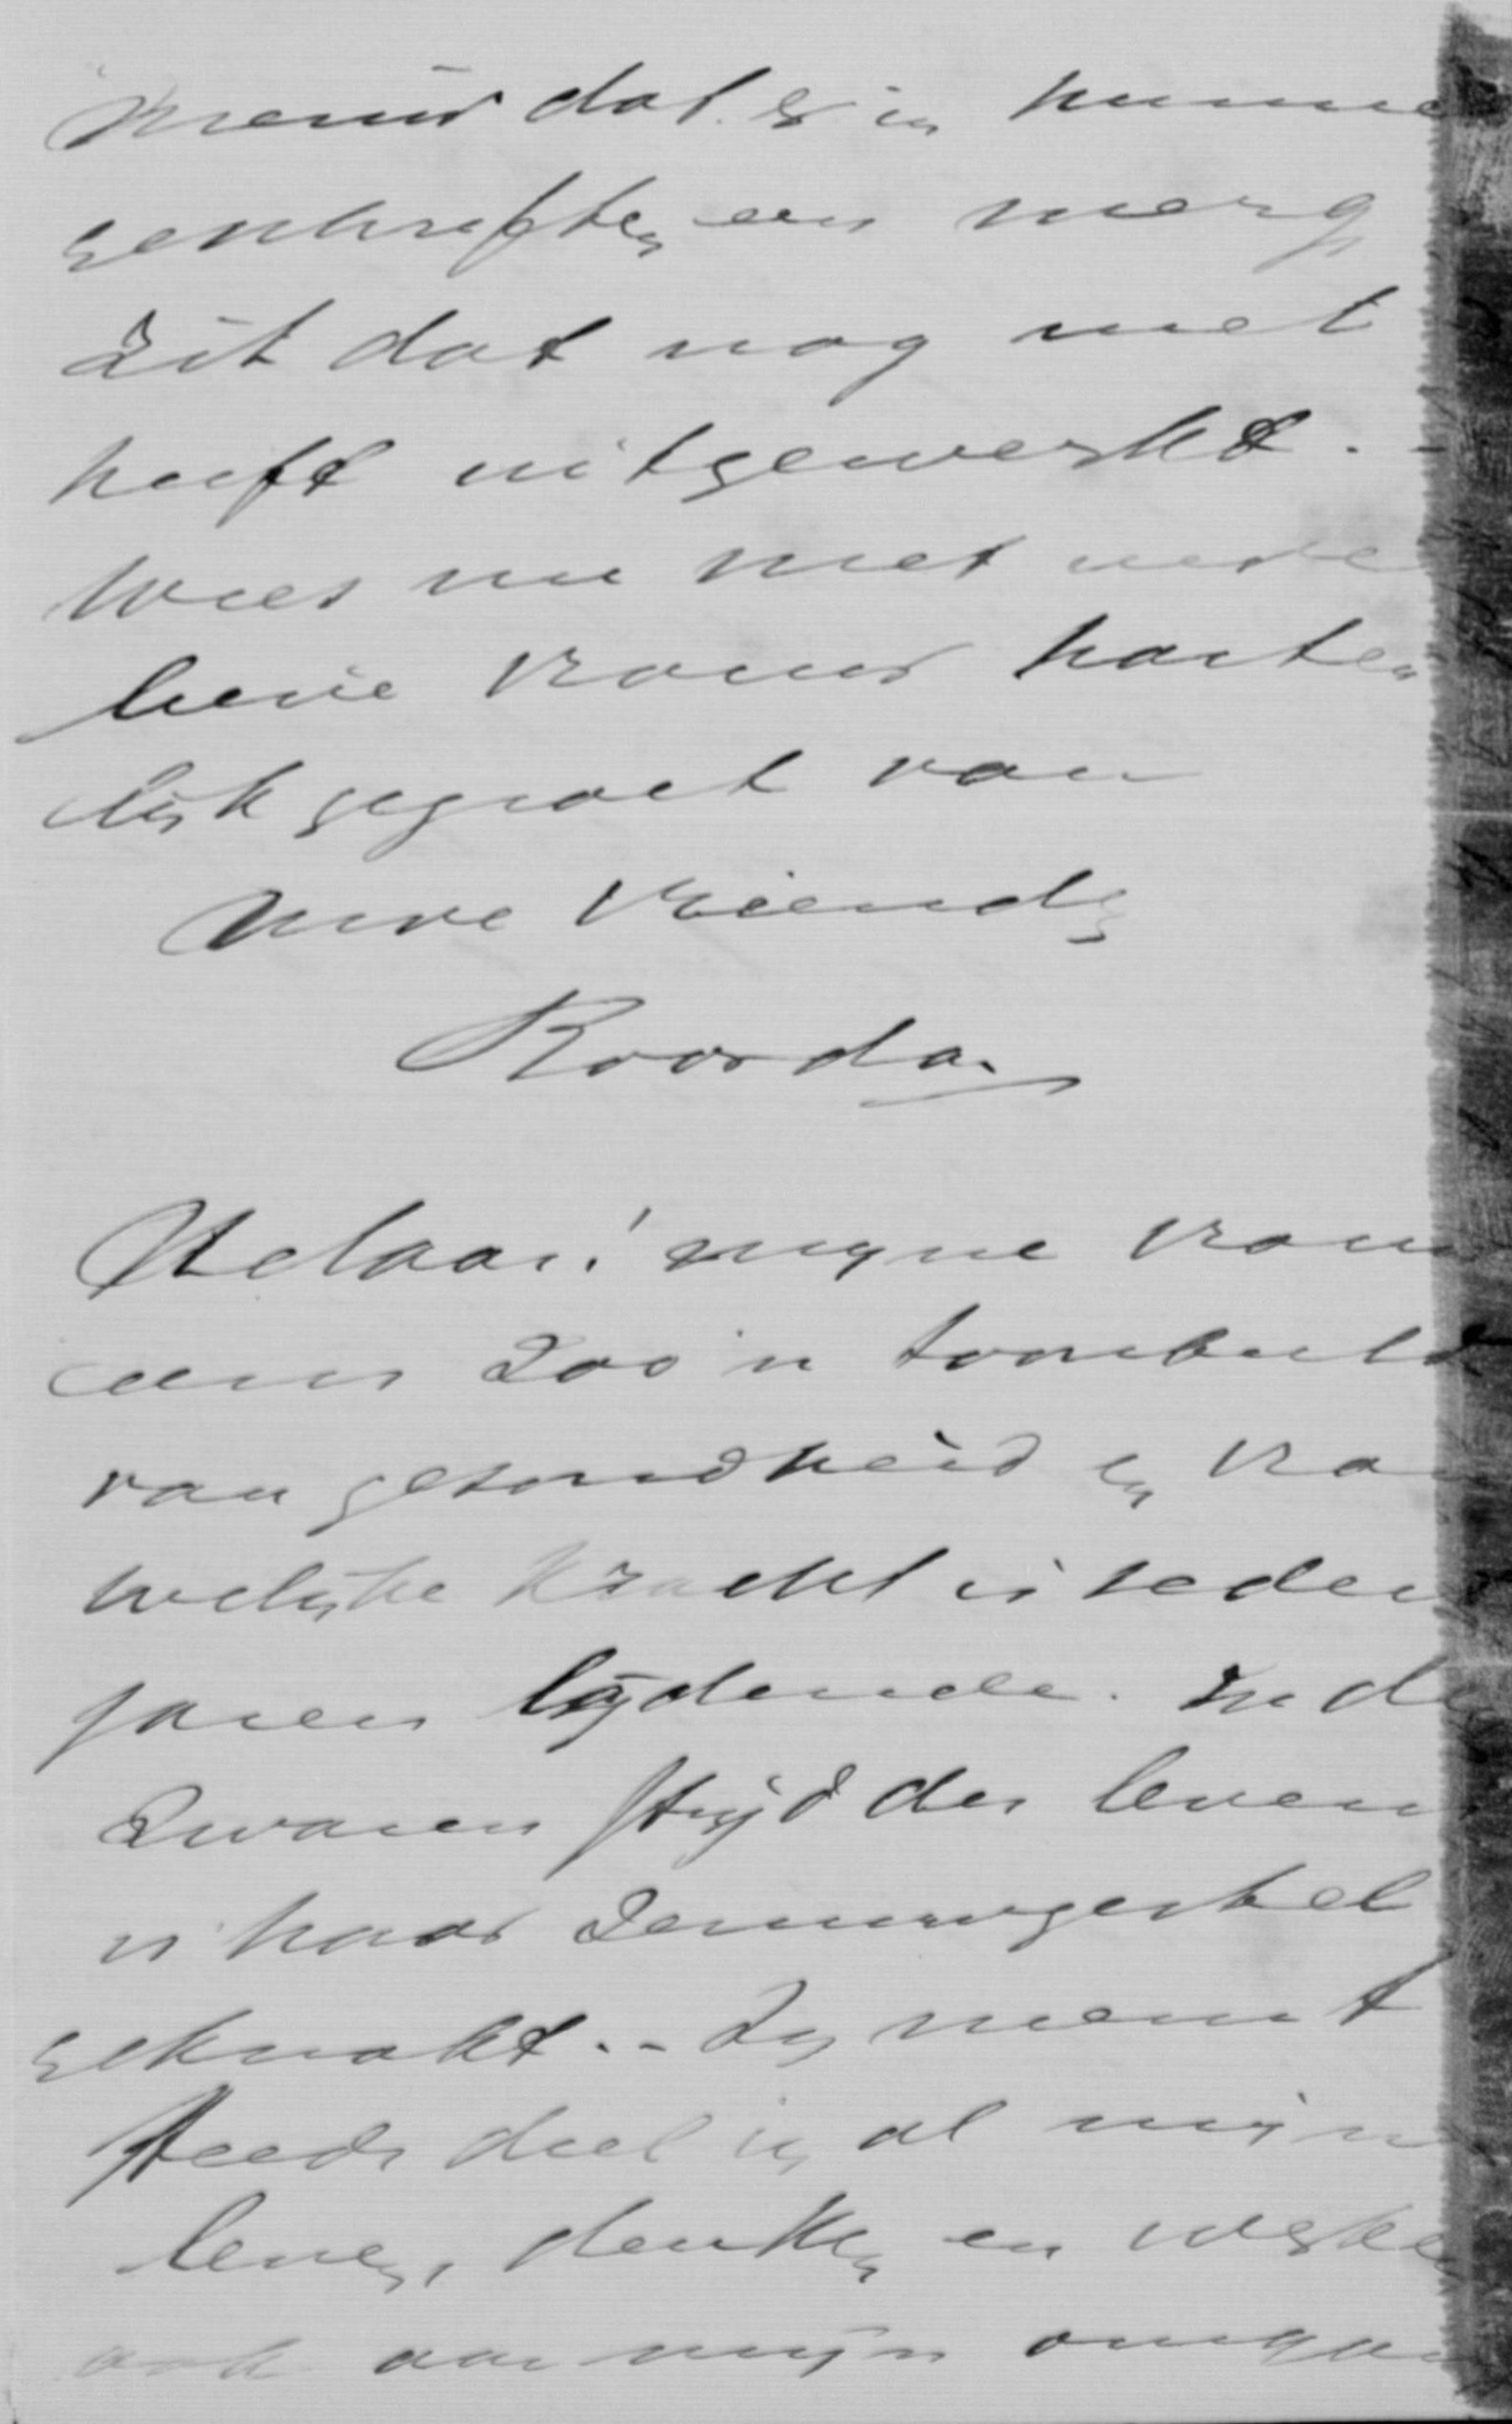 meening dat er in hunne
geschriften een merg
zit dat nog niet
heeft uitgewerkt. -
Wees nu met uwe
lieve vrouw harte-
lijk gegroet van
Uwe Vriend
Roorda.
Helaas! mijne vrouw
eens zoo'n toonbeeld
van gezondheid en vrou
welijke kracht is sedert
jaren lijdende. In de
zwaren strijd des levens
is haar zenuwgestel
geknakt. - Zij neemt
steeds deel in al mijn
leven, denken en werken
ook aan mijn omgan